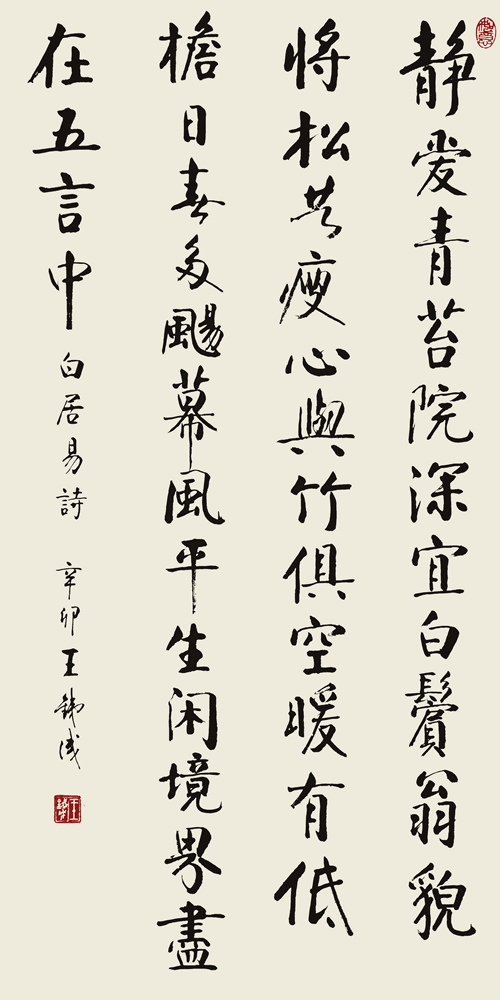 静爱青苔院深宜白鬢翁貌
将松共瘦心與竹俱空暖有低
檐日春多颺幕風平生闲境界盡
在五言中 白居易詩 辛卯 王鐵成